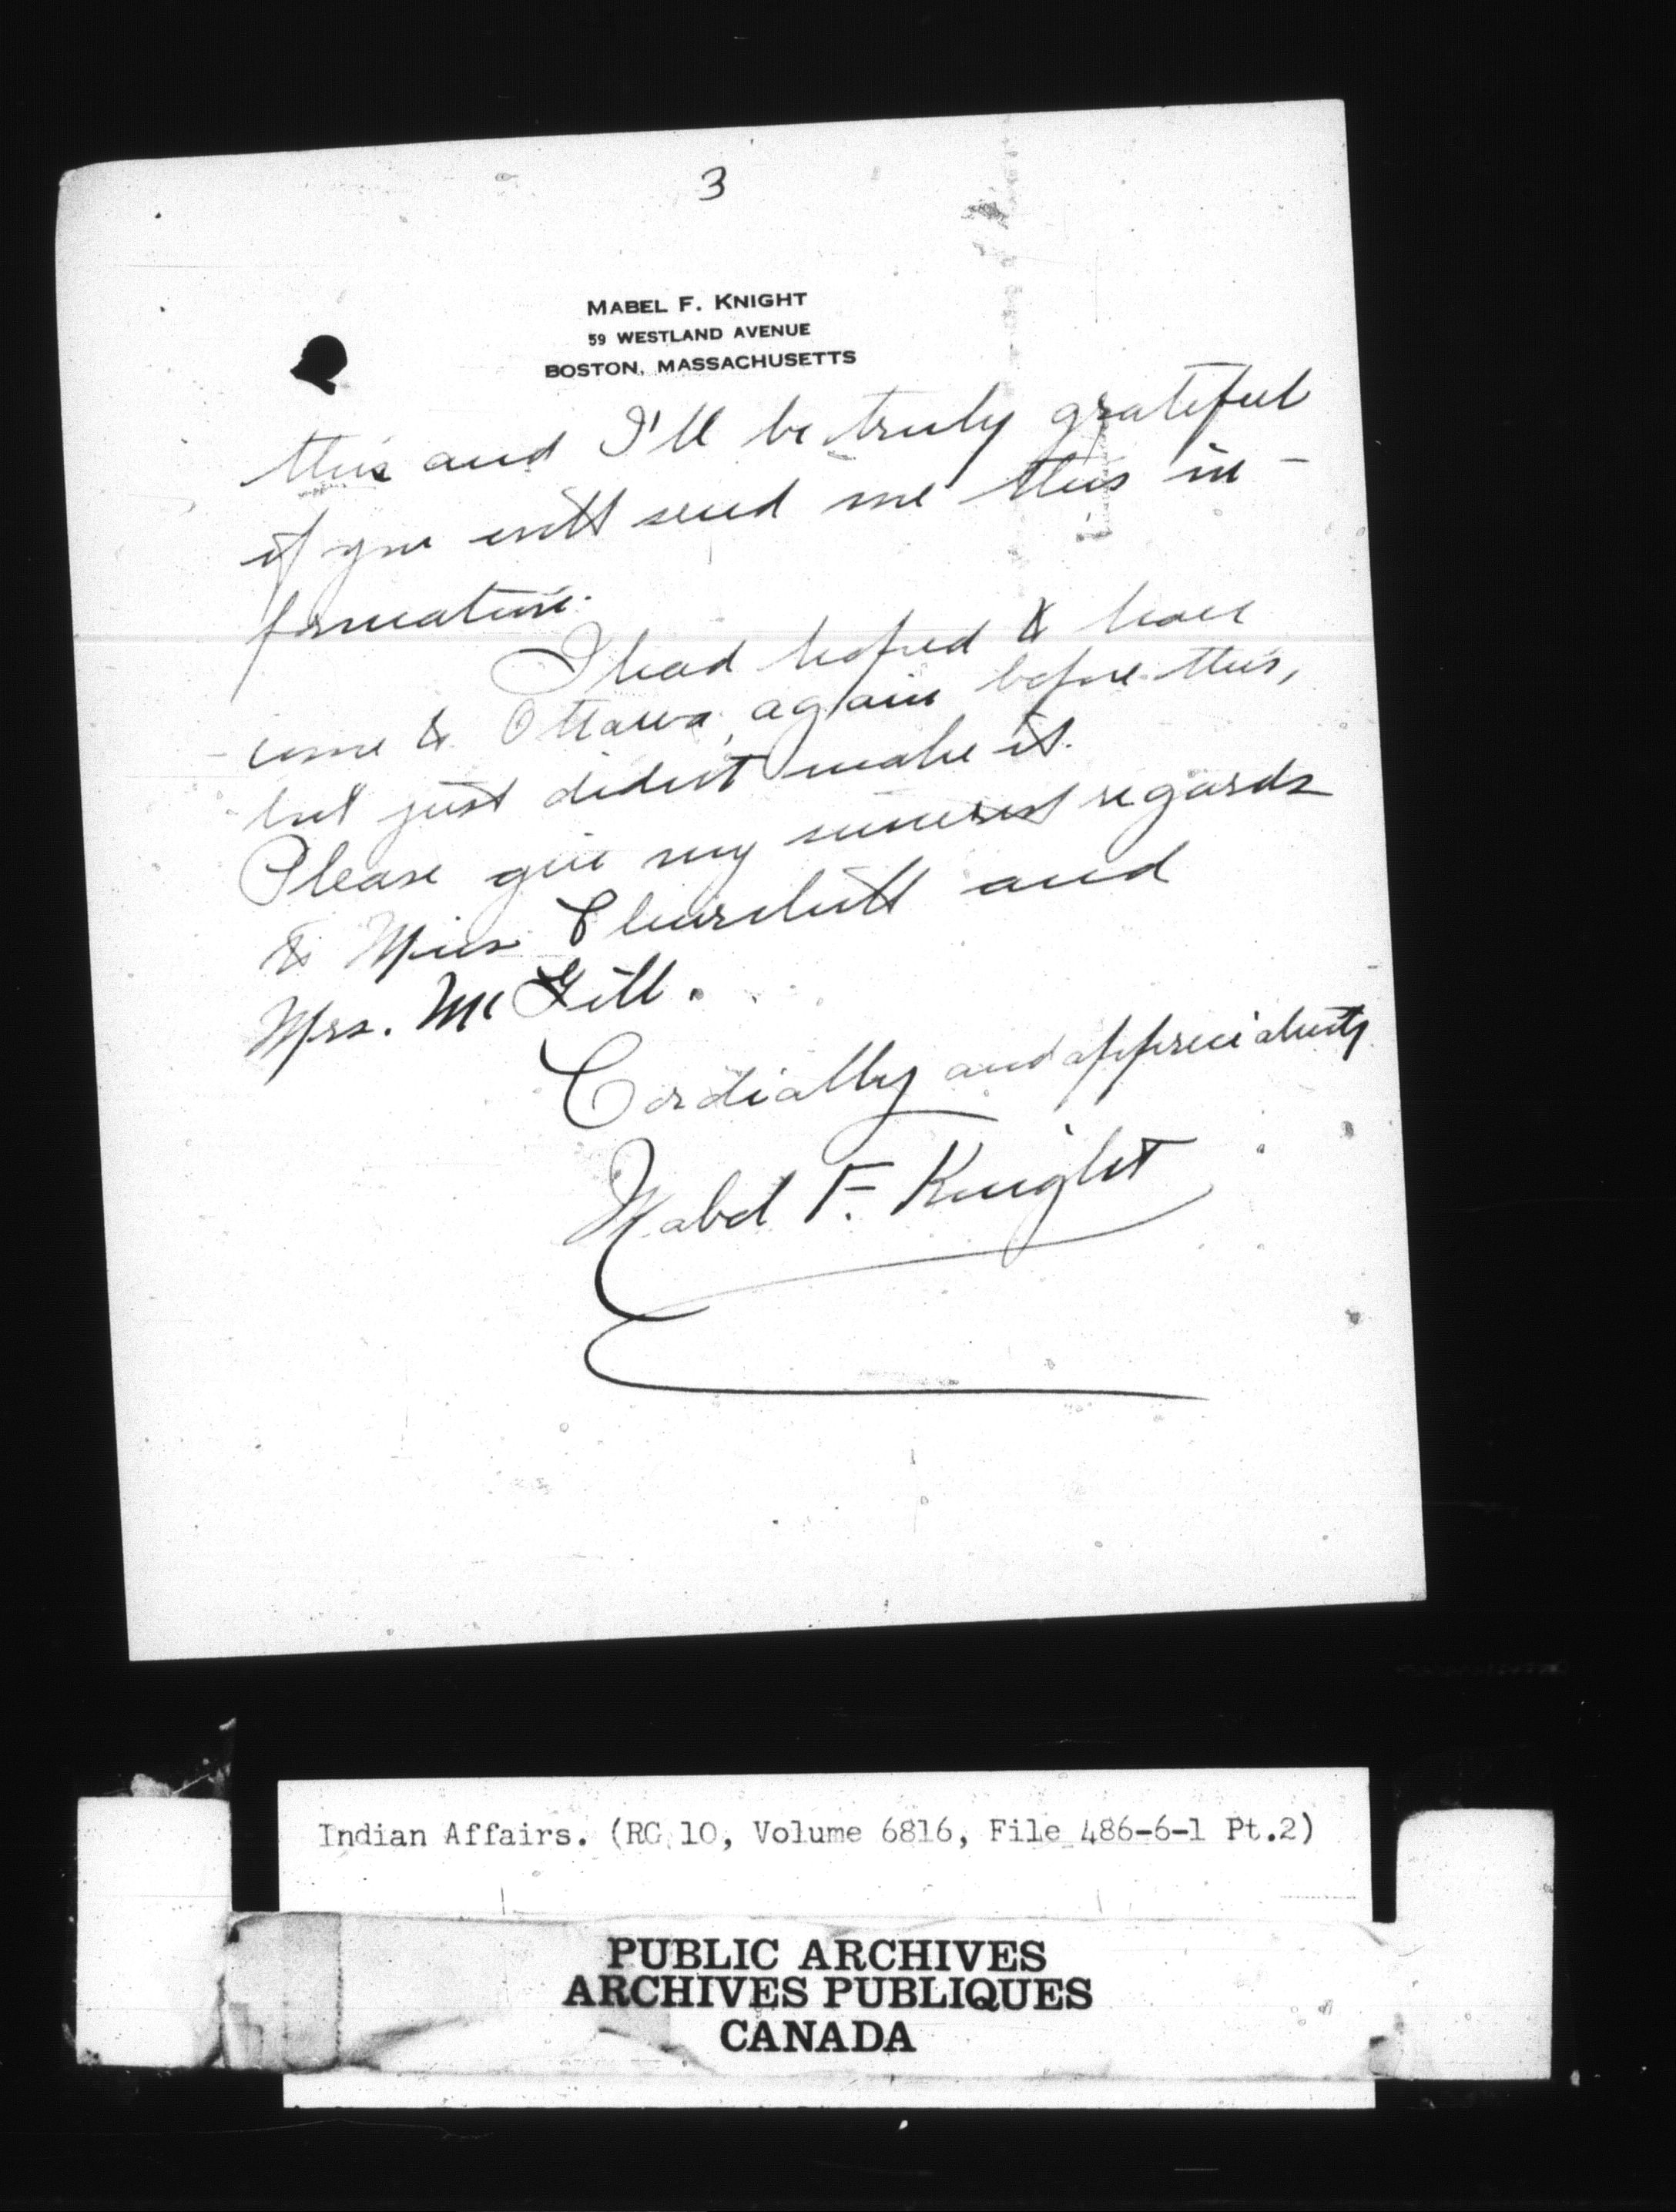 3
MABEL F. KNIGHT
59 WESTLAND AVENUE
BOSTON, MASSACHUSETTS
this and I'll be truly grateful
if you will send me this in-
formation.
I had hoped to have
come to Ottawa again before this,
but just didn't make it.
Please give my sincerest regards
to Miss Churchill and
Mrs. McGill.
Cordially and appreciatively
Mabel F. Knight
Indian Affairs. (RG 10, Volume 6816, File 486-6-1 Pt.2)
PUBLIC ARCHIVES
ARCHIVES PUBLIQUES
CANADA